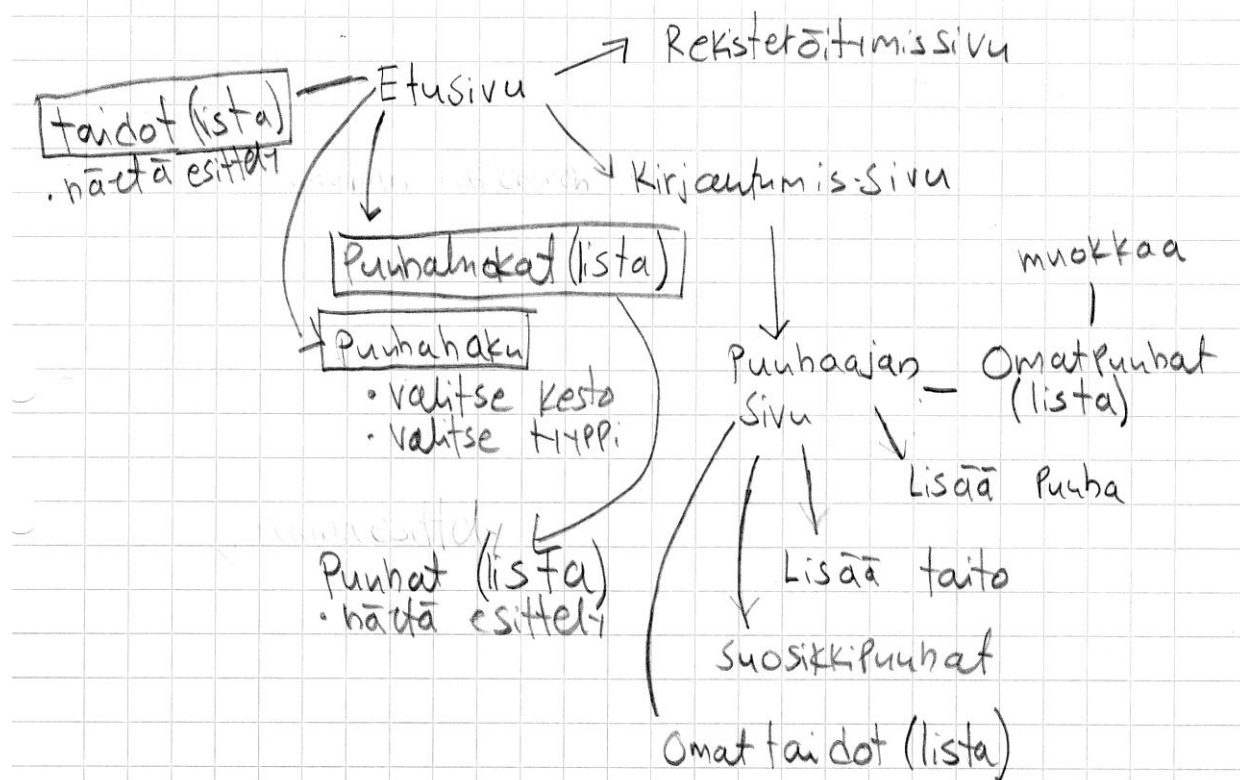 Rekisteröitymissivu
Etusivu
taidot (lista)
• näytä esittely
Kirjautumis-sivu
Puuhaluokat (lista)
muokkaa
Puuhahaku
• valitse kesto
• valitse tyyppi
Puuhaajan
sivu
Omat puuhat
(lista)
Lisää puuha
Puuhat (lista)
• näytä esittely
Lisää taito
suosikkipuuhat
Omat taidot (lista)